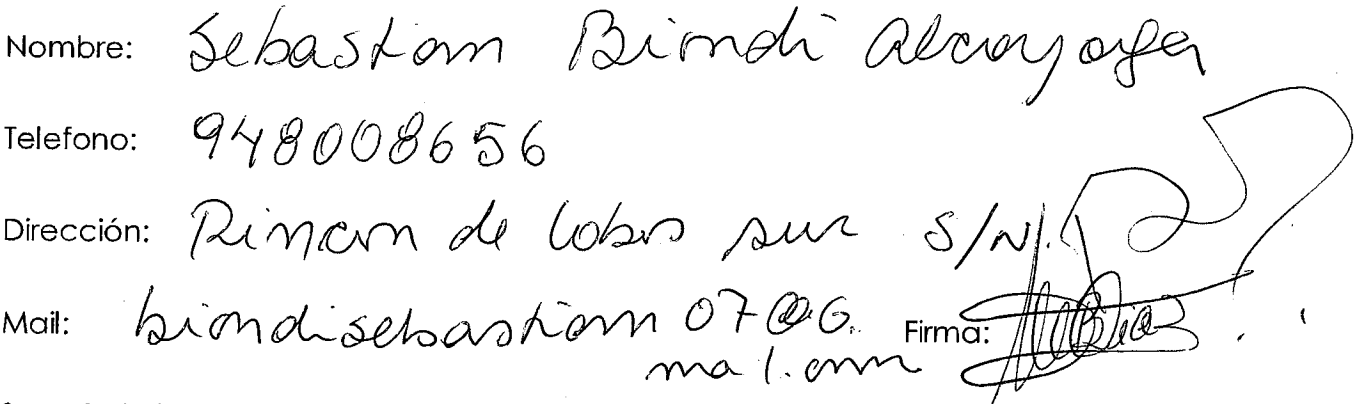 Nombre: Sebastian Biondi Alcayaga
Telefono: 948008656
Dirección: Rincon de lobos sur S/N.
Mail: biondisebastian07@G. Firma:
mail.com